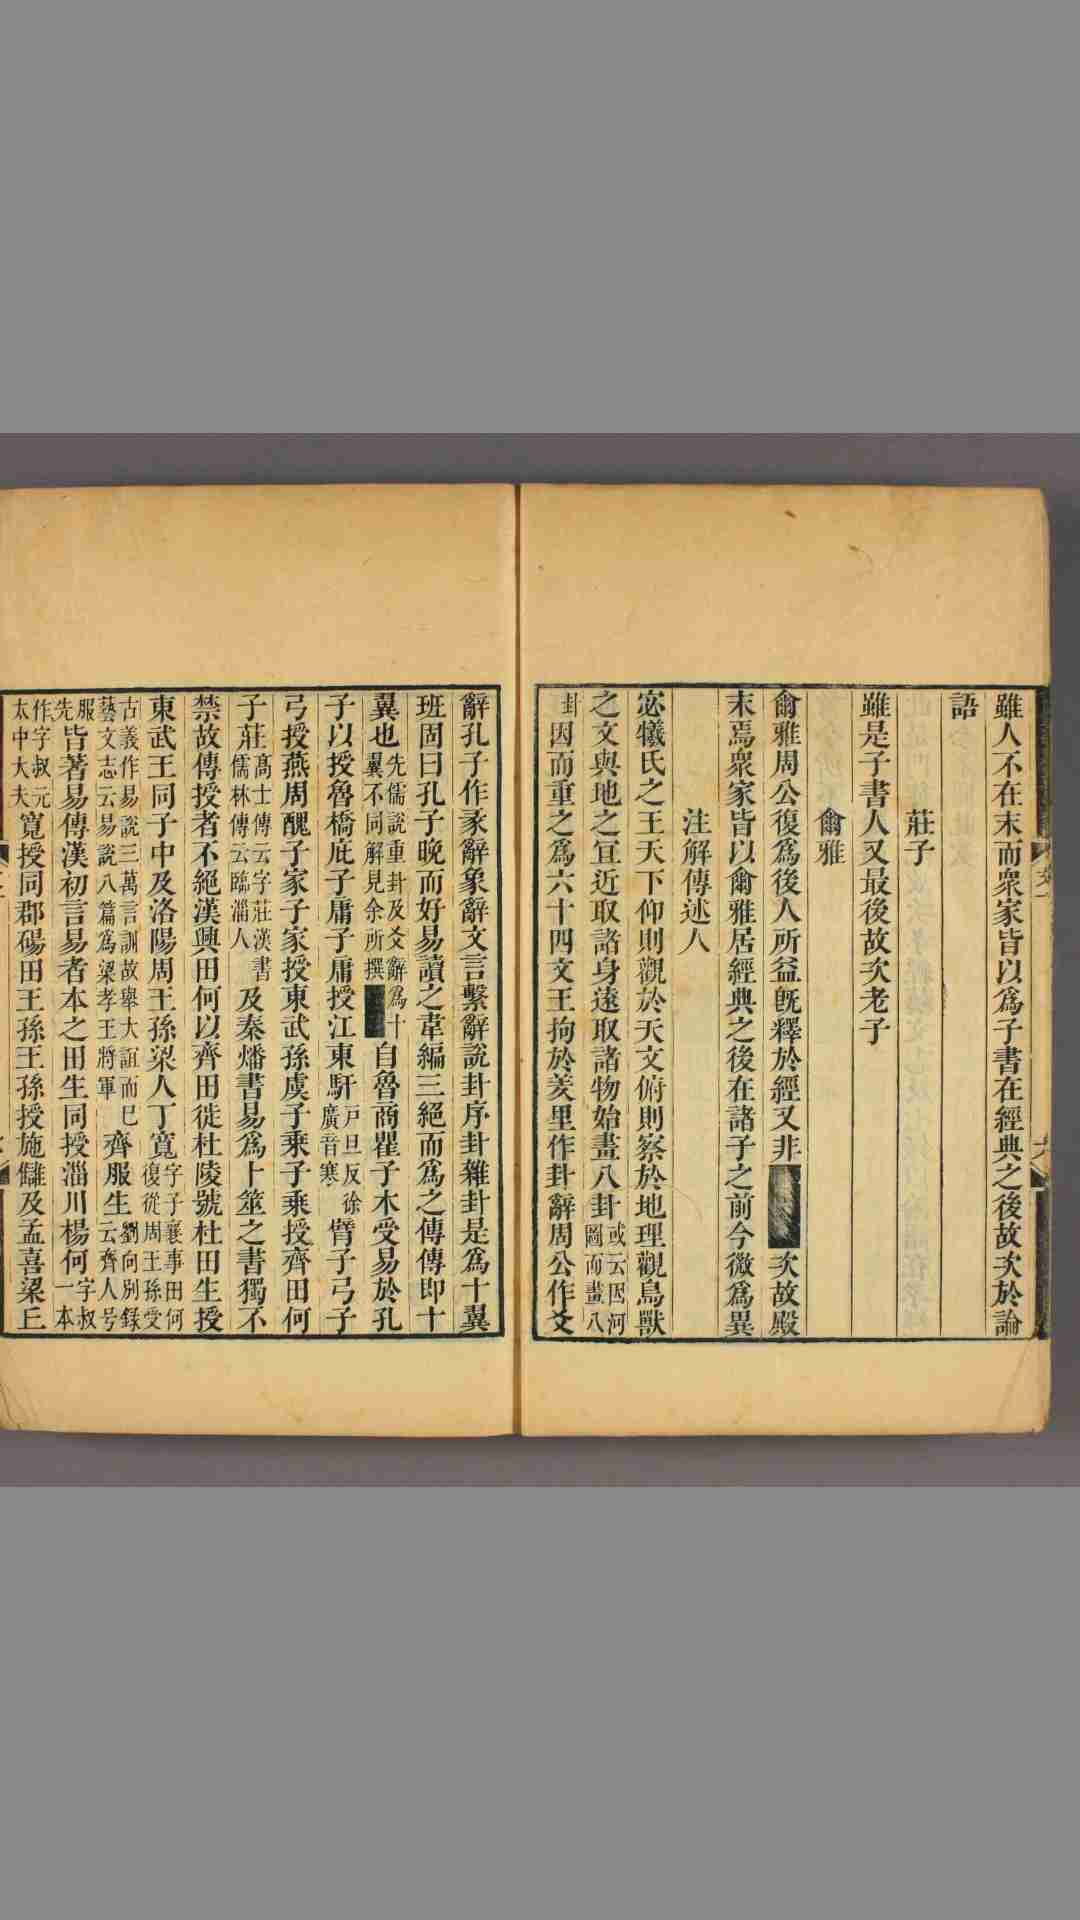 雖人不在末而衆家皆以爲子書在經典之後故次於論
語
莊子
雖是子書人又最後故次老子
爾雅
爾雅周公復爲後人所益旣釋於經又非次故殿
末焉衆家皆以爾雅居經典之後在諸子之前今微爲異
注解傳述人
宓犧氏之王天下仰則觀於天文俯則察於地理觀鳥獸
之文與地之宜近取諸身遠取諸物始畫八卦或云因河圖而畫八
卦因而重之爲六十四文王拘於羑里作卦辭周公作爻
辭孔子作彖辭象辭文言繫辭說卦序卦雜卦是爲十翼
班固曰孔子晚而好易讀之韋編三絕而爲之傳傳即十
翼也先儒說重卦及爻辭爲十翼不同解見余所撰自魯商瞿子木受易於孔
子以授魯橋庇子庸子庸授江東馯戸旦反徐廣音寒臂子弓子
弓授燕周醜子家子家授東武孫虞子乘子乘授齊田何
子莊高士傳云字莊漢書儒林傳云臨淄人及秦燔書易爲卜筮之書獨不
禁故傳授者不絕漢興田何以齊田徙杜陵號杜田生授
東武王同子中及洛陽周王孫梁人丁寬字子襄事田何復從周王孫受
古義作易說三萬言訓故舉大誼而已藝文志云易說八篇爲梁孝王將軍齊服生劉向別錄云齊人号
服先皆著易傳漢初言易者本之田生同授淄川楊何字叔一本
作字叔元太中大夫寬授同郡碭田王孫王孫授施讎及孟喜梁丘